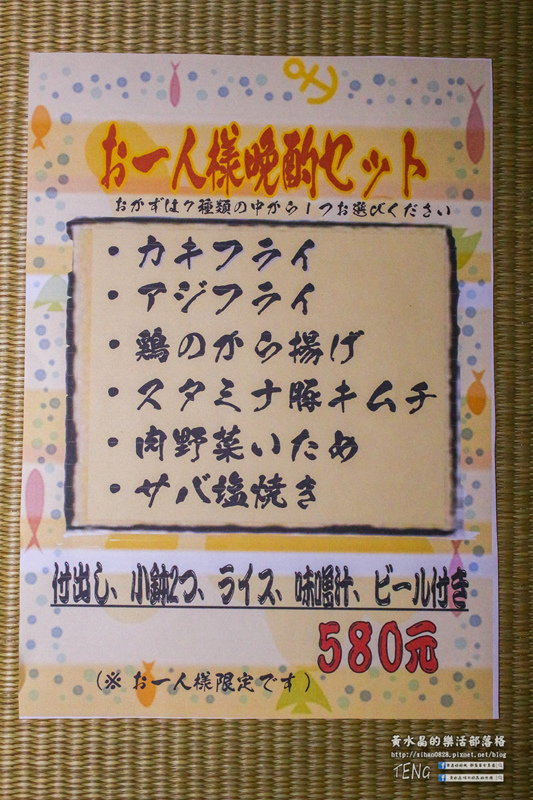 お一人様晩酌セット
おかずは7種類の中から1つお選びください
・カキフライ
・アジフライ
・鶏のから揚げ
・スタミナ豚キムチ
・肉野菜いため
・サバ塩焼き
付出し、小鉢2つ、ライス、味噌汁、ビール付き
580元
(※お一人様限定です)
黃水晶的樂活部落格
http://sihao0828.pixnet.net/blog
TENG